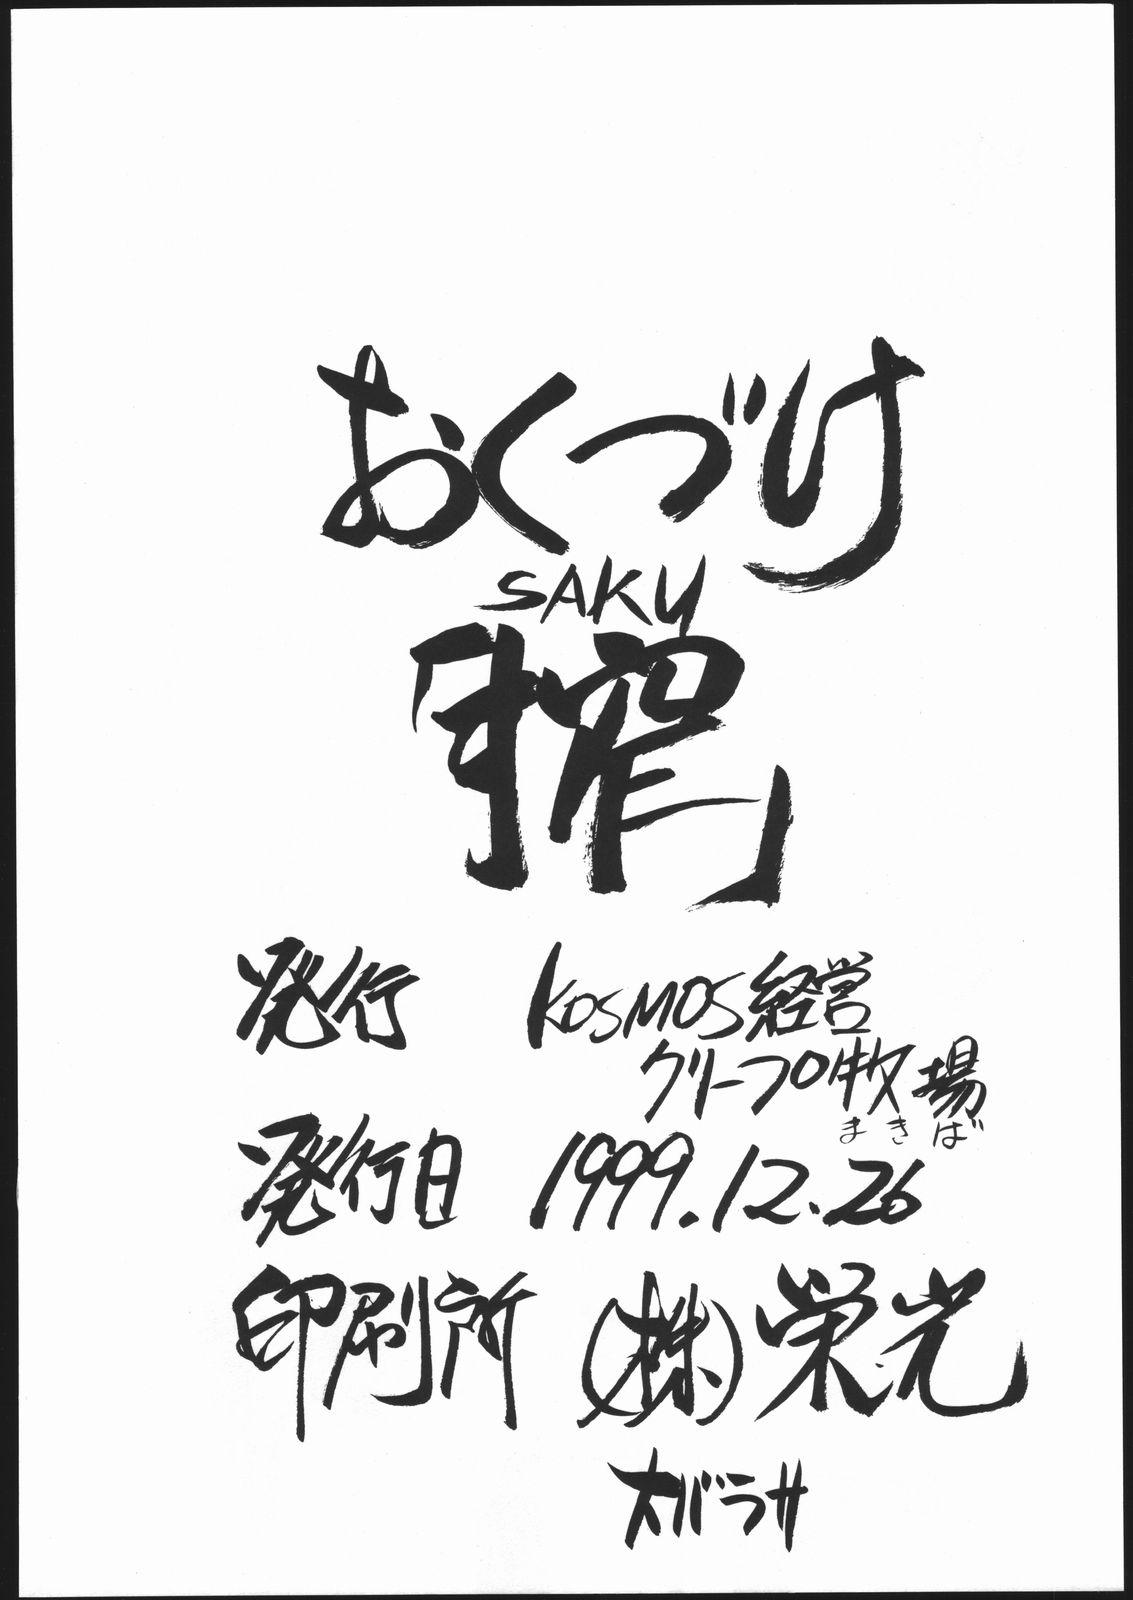 おくづけ
SAKU
「搾」
発行 KOSMOS経営
クリープロ牧場
まきば
発行日 1999.12.26
印刷所 (株)栄光
大バラサ